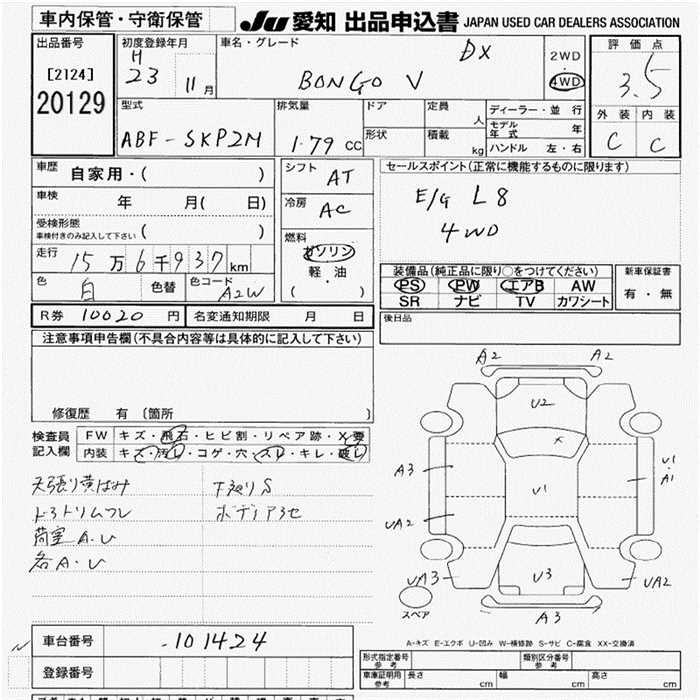 車内保管・守衛保管
JU 愛知 出品申込書 JAPAN USED CAR DEALERS ASSOCIATION
出品番号
[2124]
20129
初度登録年月
H
23 11月
車名・グレード
DX
BONGO V
2WD
・
4WD
評価点
3.5
外装 内装
C C
型式
ABF-SKP2M
排気量
1.79 CC
ドア
形状
定員
人
積載
kg
ディーラー・並行
モデル年式 年
ハンドル 左・右
車歴
自家用・( )
車検
年 月( 日)
受検形態
車検付きのみ記入して下さい ( )
走行
15万6千937km
色
白
色替
色コード
A2W
シフト
AT
冷房
AC
燃料
ガソリン
軽・油
( )
セールスポイント(正常に機能するものに限ります)
E/G L8
4WD
装備品(純正品に限り○をつけてください)
PS PW エアB AW
SR ナビ TV カワシート
新車保証書
有・無
R券 10020円
名変通知期限 月 日
後日品
注意事項申告欄(不具合内容等は具体的に記入して下さい)
修復歴 有 〔箇所 〕
検査員
記入欄
FW キズ・飛石・ヒビ割・リペア跡・X要
内装 キズ・汚レ・コゲ・穴・スレ・キレ・破レ
天張り黄ばみ
下廻りS
ボデーア3セ
荷室A.U
各A.U
A2 A2
U2
A3
U1
U1
A1
UA2
UA3
U3
UA2
A3
スペア
A-キズ E-エクボ U-凹み W-補修跡 S-サビ C-腐食 XX-交換済
車台番号
-101424
登録番号
形式指定番号
参考
類別区分番号
参考
車庫証明用
参考
長さ cm
幅 cm
高さ cm